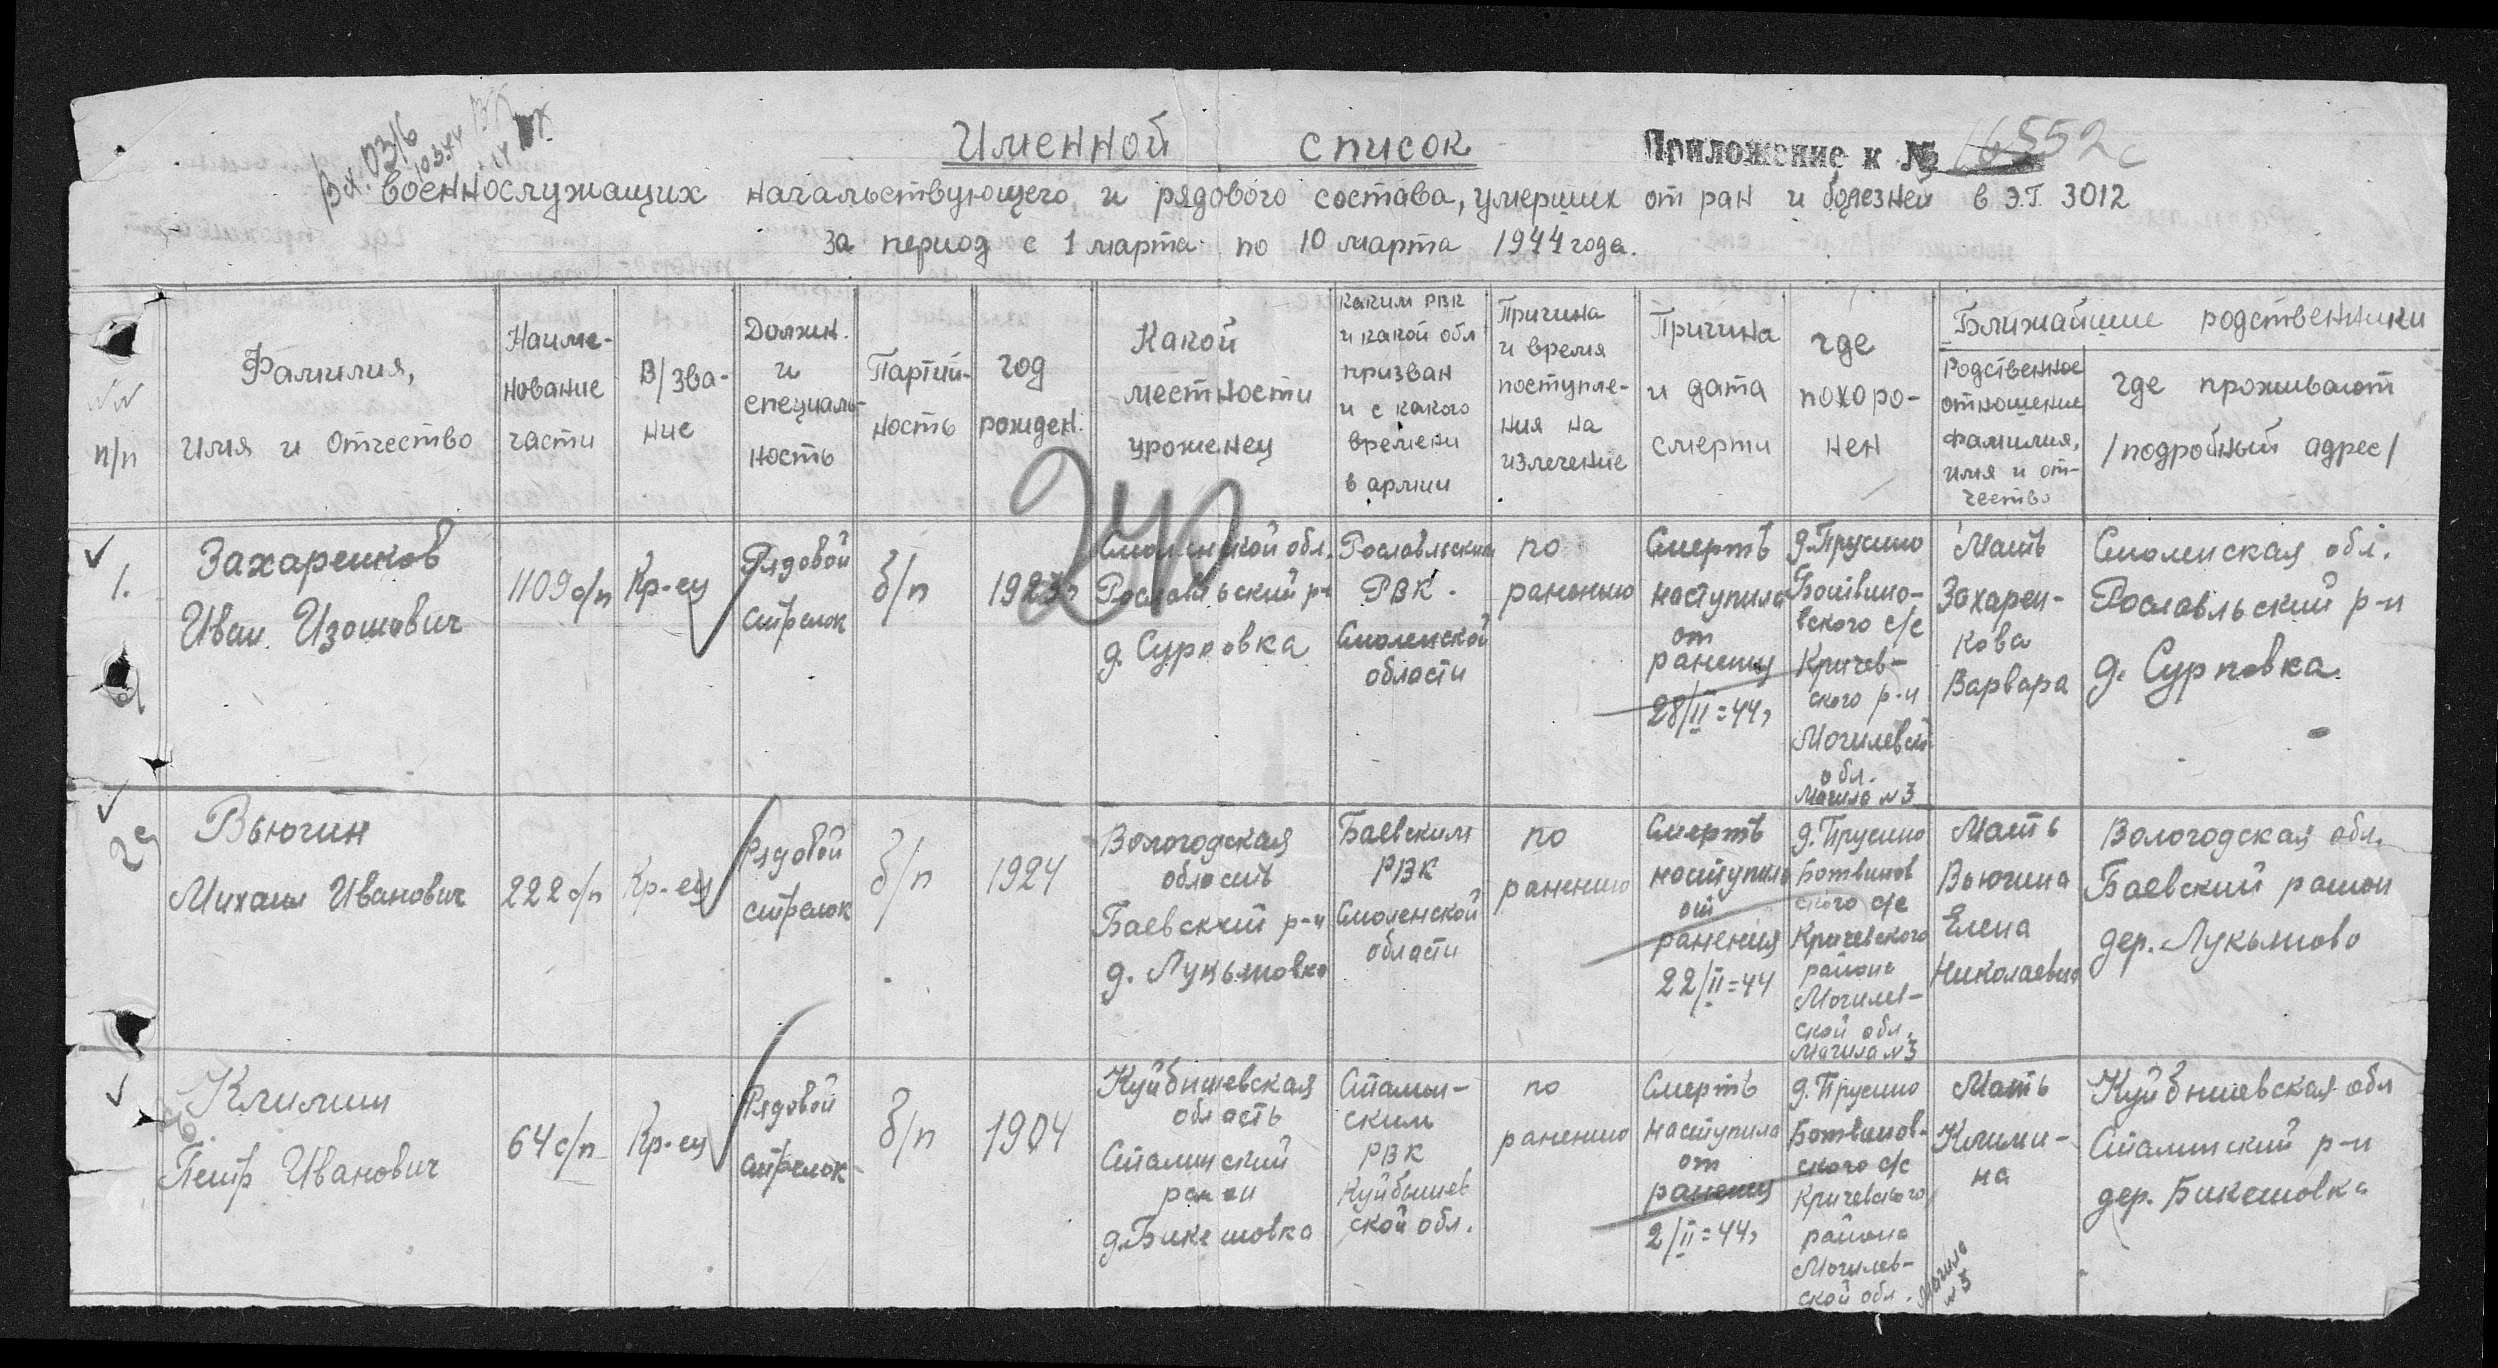 Вх. 0316
10.3.44
Именной список
Приложение к № 16552с
военнослужащих начальствующего и рядового состава, умерших от ран и болезней в Э.Г. 3012
за период с 1 марта по 10 марта 1944 года.
№№
п/п
Фамилия,
имя и отчество
Наиме-
нование
части
В/зва-
ние
Должн.
и
специаль-
ность
Партий-
ность
год
рожден.
Какой
местности
уроженец
Каким РВК
и какой обл
призван
и с какого
времени
в армии
Причина
и время
поступле-
ния на
излечение
Причина
и дата
смерти
где
похоро-
нен
Ближайшие родственники
Родственное
отношение
фамилия,
имя и от-
чество
где проживают
/подробный адрес/
240
1.
Захаренков
Иван Изотович
1109 с/п
Кр-ец
Рядовой
стрелок
б/п
1923
Смоленской обл.
Рославльский р-н
д. Сурповка
Рославльским
РВК.
Смоленской
области
по
ранению
Смерть
наступила
от
ранения
28/II=44г
д. Прусино
Ботвино-
вского с/с
Кричев-
ского р-н
Могилевской
обл.
Могила №3
Мать
Захарен-
кова
Варвара
Смоленская обл.
Рославльский р-н
д. Сурповка.
2
Вьюгин
Михаил Иванович
222 с/п
Кр-ец
Рядовой
стрелок
б/п
1924
Вологодская
область
Баевский р-н
д. Лукьяновка
Баевским
РВК
Смоленской
области
по
ранению
Смерть
наступила
от
ранения
22/II=44
д. Прусино
Ботвинов
ского с/с
Кричевского
района
Могилев-
ской обл.
Могила №3
Мать
Вьюгина
Елена
Николаевна
Вологодская обл.
Баевский район
дер. Лукьяново
Климин
Петр Иванович
64 с/п
Кр-ец
Рядовой
стрелок
б/п
1904
Куйбышевская
область
Сталинский
район
д. Бикешовка
Сталин-
ским
РВК
Куйбышев
ской обл.
по
ранению
Смерть
наступила
от
ранения
2/II=44г
д. Прусино
Ботвинов-
ского с/с
Кричевского
района
Могилев-
ской обл.
Могила
№3
Мать
Клими-
на
Куйбышевская обл
Сталинский р-н
дер. Бикешовка